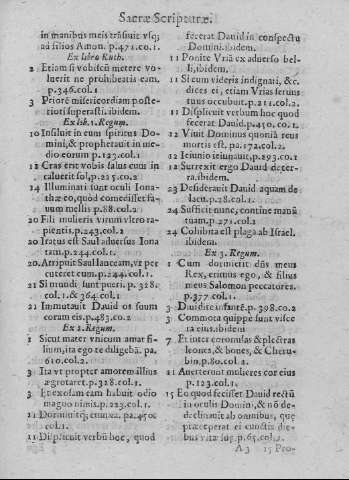 Sacræ Scripturæ.
in manibus meis trãsiuit vsq;
ad filios Amon. p.471.co.1.
Ex libro Ruth.
2 Etiam si vobiscũ metere vo-
luerit ne prohibeatis eam.
p.346.col.1
3 Priorẽ misericordiam poste-
riori superasti. ibidem.
Ex lib. 1. Regum.
10 Insiluit in eum spiritus Do-
mini, & prophetauit in me-
dio eorum p.123.col.1
12 Cras erit vobis salus cum in
caluerit sol, p.215.co.2
14 Illuminati sunt oculi Iona-
thæ eo, quod comedisset fa-
uum mellis p.88.col.2
20 Fili mulieris virum vltro ra-
pientis.p.243.col.2
20 Iratus est Saul aduersus Iona
tam.p.244.col.1.
20 Arripuit Saul lanceam, vt per
cuteret eum.p.244.col.1.
21 Si mundi sunt pueri. p. 328.
col.1. & 364.col.1
21 Immutauit Dauid os suum
coram eis.p.483.co.2
Ex 2. Regum.
1 Sicut mater vnicum amat fi-
lium, ita ego te diligebã. pa.
610.col.2.
3 Ita vt propter amorem illius
ægrotaret.p.328.col.1.
3 Et exosam eam habuit odio
magno nimis.p.223.col.1.
11 Dormiuitq;
11 Displicuit verbũ hoc, quod
fecerat Dauid in conspectu
Domini.ibidem.
11 Ponite Vriã ex aduerso bel-
li, ibidem.
11 Si eum videris indignati, &c.
dices ei, etiam Vrias seruus
tuus occubuit. p.211.col.2.
11 Displicuit verbum hoc quod
fecerat Dauid.p.450. co.1.
12 Viuit Dominus quoniã reus
mortis est. pa.172.col.2.
12 Ieiunio ieiunauit, p.293.co.1
12 Surrexit ergo Dauid de ter-
ra.ibidem.
23 Desiderauit Dauid aquam de
lacu.p.28.col.1.
24 Sufficit nunc, contine manũ
tuam.p.271.col.2
24 Cohibita est plaga ab Israel.
ibidem.
Ex 3. Regum.
1 Cum dormierit dñs meus
Rex, erimus ego, & filius
meus Salomon peccatores.
p.377.col.1.
3 Diuidite infantẽ.p.398.co.2
3 Commota quippe sunt visce
ra eius.ibidem
7 Et inter coronulas & plectras
leones, & boues, & Cheru-
bin, p.80.col.2.
11 Auerterunt mulieres cor eius
p.123.col.1.
15 Eo quod fecisset Dauid rectũ
in oculis Domini, & nõ de-
declinauit ab omnibus, quę
præceperat ei cunctis die-
bus vitæ suę.p.65.col.2.
A 3 15 Pro-